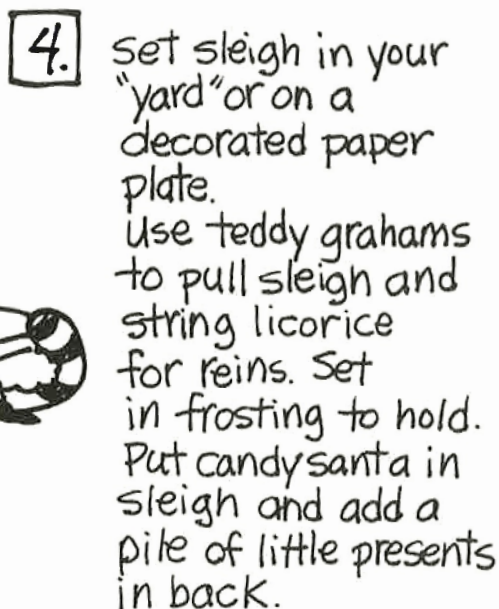 4. Set sleigh in your
"yard" or on a
decorated paper
plate.
Use teddy grahams
to pull sleigh and
string licorice
for reins. Set
in frosting to hold.
Put candy santa in
sleigh and add a
pile of little presents
in back.